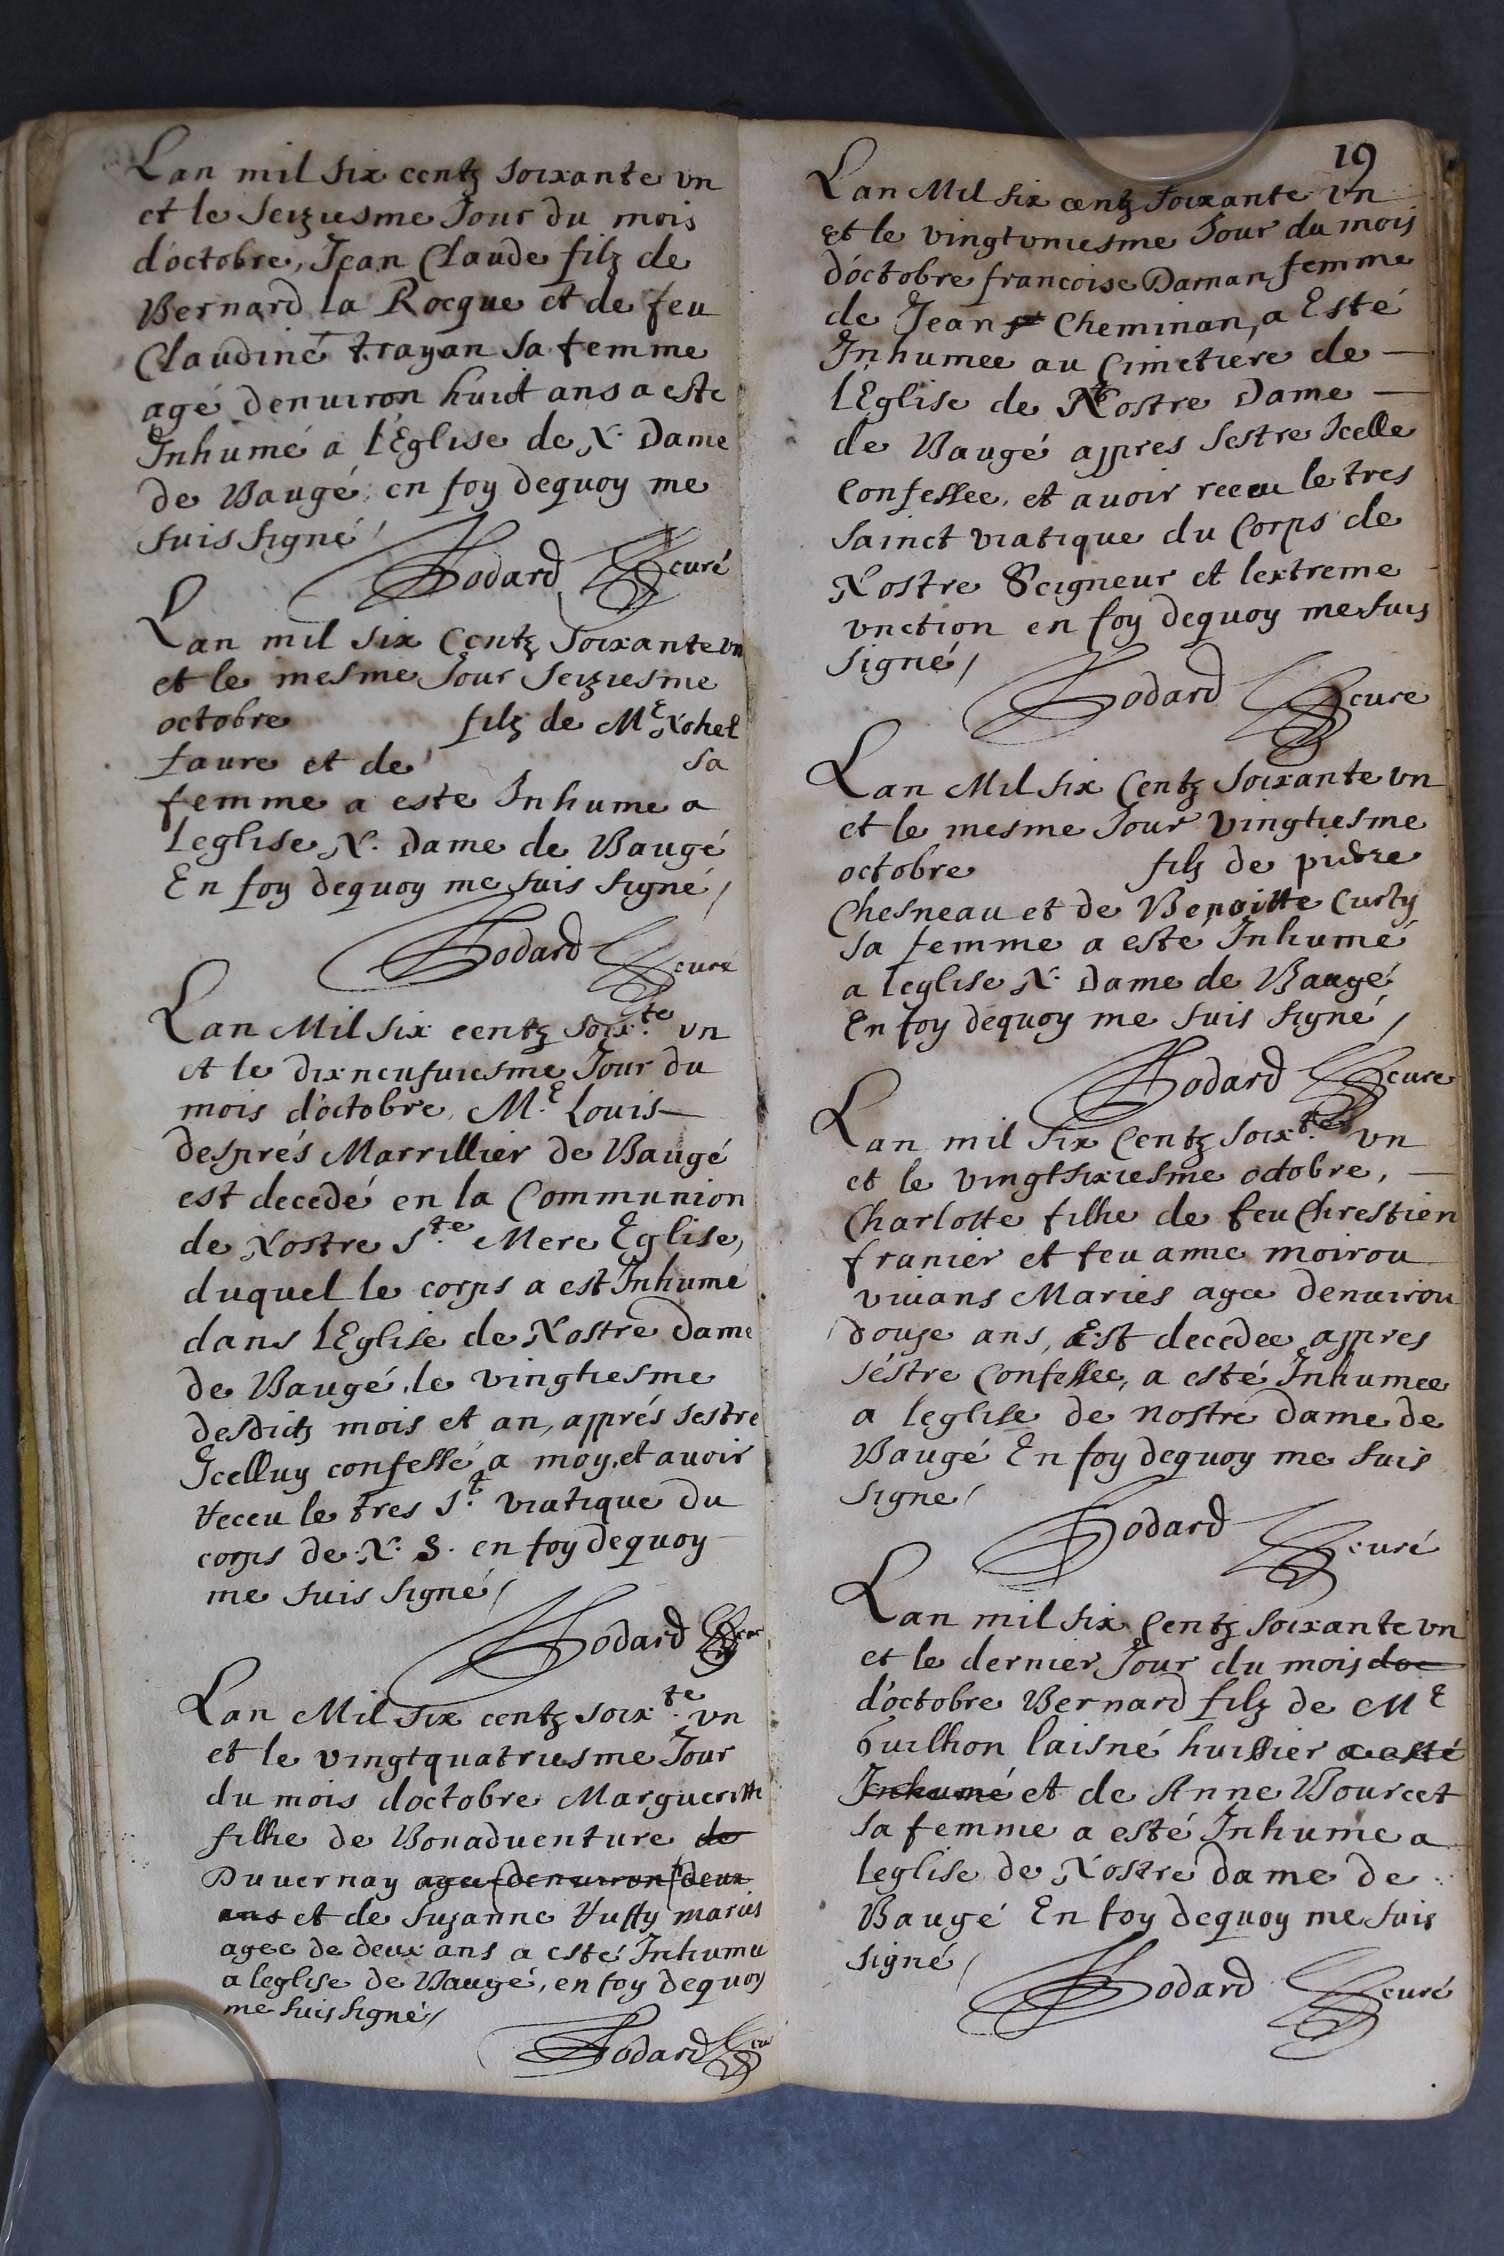 Lan mil six centz soixante vn
et le seiziesme Jour du mois
d'octobre, Jean Claude filz de
Bernard la Rocque et de feu
Claudine trayan sa femme
agé denuiron huict ans a este
Inhumé a l'Eglise de N. Dame
de Baugé, en foy dequoy me
suis signé /
Godard curé
Lan mil six Centz soixante vn
et le mesme Jour seiziesme
octobre filz de Me Nohel
faure et de sa
femme a este Inhume a
leglise N. Dame de Baugé
En foy dequoy me suis signé /
Godard curé
Lan Mil six centz soix.te vn
et le dixneufuiesme Jour du
mois d'octobre, M.e Louis
després Marrillier de Baugé
est decedé en la Communion
de Nostre S.te Mere Eglise,
duquel le corps a est Inhumé
dans lEglise de Nostre Dame
de Baugé, le vingtiesme
desdictz mois et an, apprés sestre
Icelluy confessé a moy, et avoir
receu le tres S.t viatique du
corps de N. S. en foy dequoy
me suis signé /
Godard
Lan Mil six centz soix.te vn
et le vingtquatriesme Jour
du mois doctobre Margueritte
filhe de Bonaduenture de
Duuernay agee denuiron deux
ans et de Suzanne Ruffy mariés
agee de deux ans a esté Inhumee
a leglise de Baugé, en foy dequoy
me suis signé /
Godard
19
Lan Mil six centz soixante vn
et le vingtvniesme Jour du mois
d'octobre francoise Darnan femme
de Jean Cheminan, a Esté
Inhumee au Cimetiere de
lEglise de Nostre Dame
de Baugé appres sestre Icelle
Confessee, et auoir receu le tres
sainct viatique du Corps de
Nostre Seigneur et lextreme
vnction en foy dequoy me suis
signé /
Godard cure
Lan Mil six Centz soixante vn
et le mesme Jour vingtiesme
octobre filz de pierre
Chesneau et de Benoitte Curty
sa femme a esté Inhumé
a leglise N. Dame de Baugé
En foy dequoy me suis signé /
Godard cure
Lan mil six Centz soix.te vn
et le vingtsixiesme octobre,
Charlotte filhe de feu Chrestien
franier et feu anne moirou
viuans Mariés agee denuiron
douze ans, Est decedee appres
séstre Confessee, a esté Inhumee
a leglise de nostre dame de
Baugé En foy dequoy me suis
signe /
Godard curé
Lan mil six Centz soixante vn
et le dernier Jour du mois doc
d'octobre Bernard filz de Me
Guilhon laisné huissier a esté
Inhumé et de Anne Bourcet
sa femme a esté Inhume a
leglise de Nostre dame de
Baugé En foy dequoy me suis
signé /
Godard curé